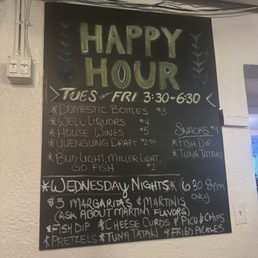 HAPPY
HOUR
TUES - FRI 3:30-6:30
* DOMESTIC BOTTLES $3
* WELL LIQUORS $4
* HOUSE WINES $5
SNACKS $4
* YUENGLING DRAFT $2.50
* FISH DIP
* TUNA TATAKI
* BUD LIGHT, MILLER LIGHT,
GO FISH $2
* WEDNESDAY NIGHTS * 6:30 8PM
ONLY
$5 MARGARITAS & MARTINIS
(ASK ABOUT MARTINI FLAVORS)
* PICO & CHIPS
* FISH DIP * CHEESE CURDS
* PRETZELS * TUNA TATAKI * FRIED PICKLES